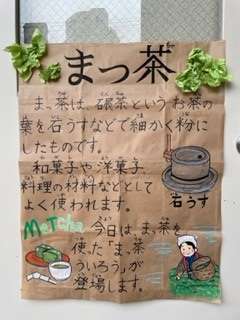 まっ茶
まっ茶は、碾茶というお茶の
葉を石うすなどで細かく粉に
したものです。
和菓子や洋菓子、
料理の材料などとして
よく使われます。
石うす
Matcha
今日は、まっ茶を
使った「まっ茶
ういろう」が
登場します。